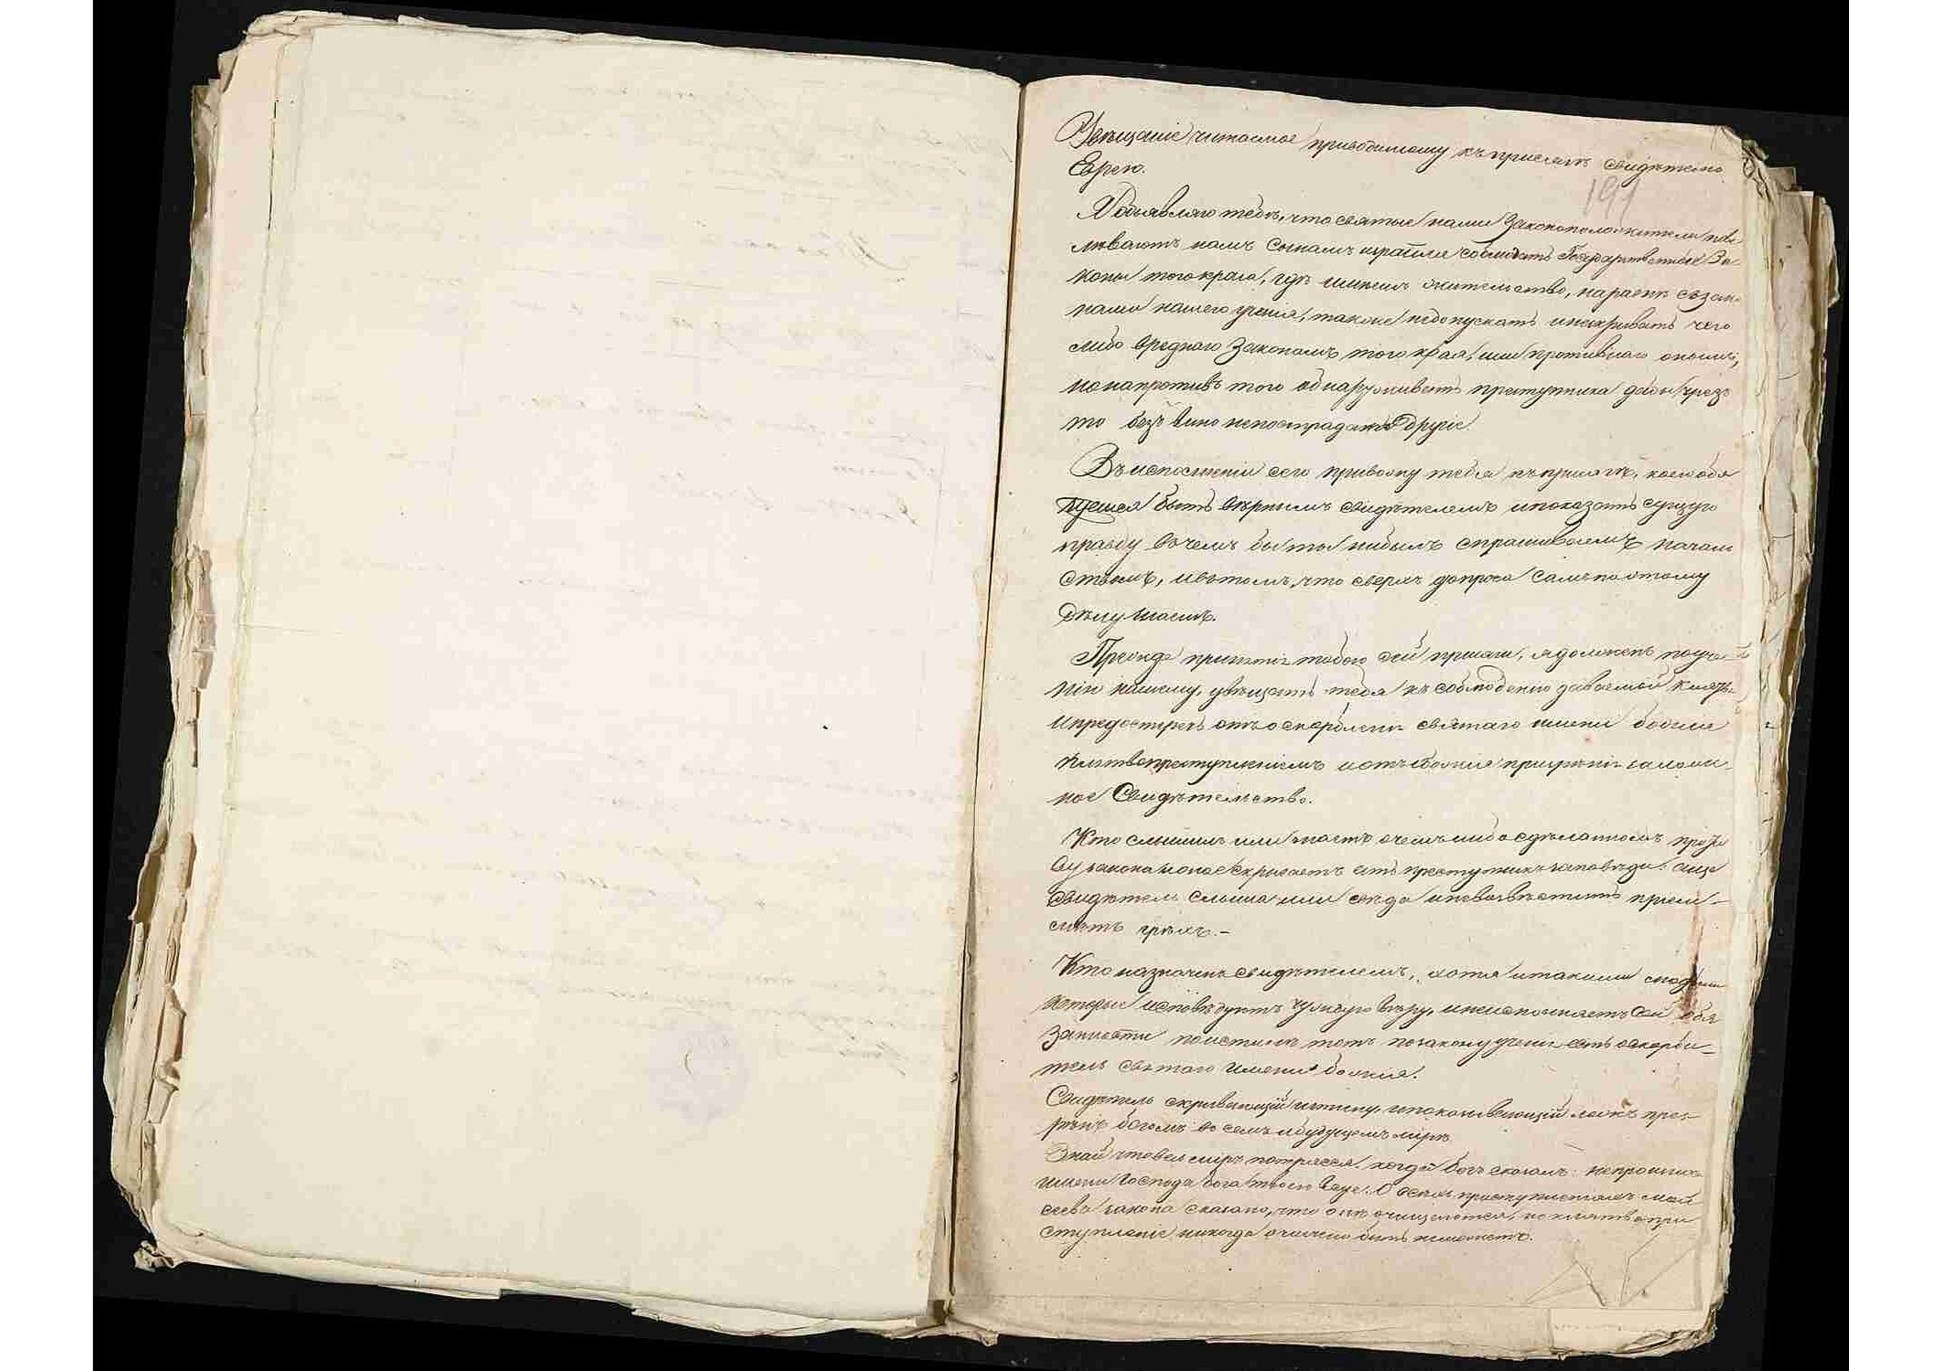 Увѣщаніе читаемое приводимому къ присягѣ свидѣтелю
Еврею.
191
Объявляю тебѣ, что святые наши Законоположители пове-
лѣваютъ намъ сынамъ израиля соблюдать Государственные За-
коны того края, гдѣ имѣемъ жительство, наравнѣ съ зако-
нами нашего ученія, также недопускать инескрывать чего
либо вреднаго Законамъ того края, или противнаго онымъ,
но напротивъ того обнаруживать преступника дабы чрезъ
то безъ вино непострадали другіе.
Въ исполненіи сего привожу тебя къ присягѣ, коею обя
зуешся быть вѣрнымъ свидѣтелемъ ипоказать сущую
правду въ чемъ бы ты нибылъ спрашиваемъ началь
ствомъ, ивътомъ, что сверхъ допроса самъ по этому
дѣлу знаешь.
Прежде принятія тобою сей присяги, я долженъ по уче-
нію нашему, увѣщать тебя къ соблюденію даваемой клятвы
ипредостречь отъ оскорбленія святаго имени божія
клятвопреступленіемъ и отъ божія презрѣнія за лож-
ное Свидѣтельство.
Кто слышилъ или знаетъ о чемъ либо сдѣланномъ проти
ву закона и оное скрываетъ есть преступникъ заповѣди: аще
свидѣтель слыша или видя и невозвѣститъ пріем-
летъ грѣхъ.-
Кто назначенъ свидѣтелемъ, хотя и такими людьми
которые исповѣдуютъ чуждую вѣру, и неисполняетъ сей обя
занности поистинѣ тотъ по закону ученія есть оскорби-
тель святаго имени божія.
Свидѣтель скрывающій истину, ипоказывающій ложь през-
рѣнъ богомъ въ семъ и будущемъ мірѣ
Знай что весь міръ потрясся когда богъ сказалъ: непріемли
имени Господа бога твоего всуе. О всѣхъ преступникахъ мой
сеева закона сказано, что они очищаются, но клятвопре
ступленіе никогда очищено быть неможетъ.